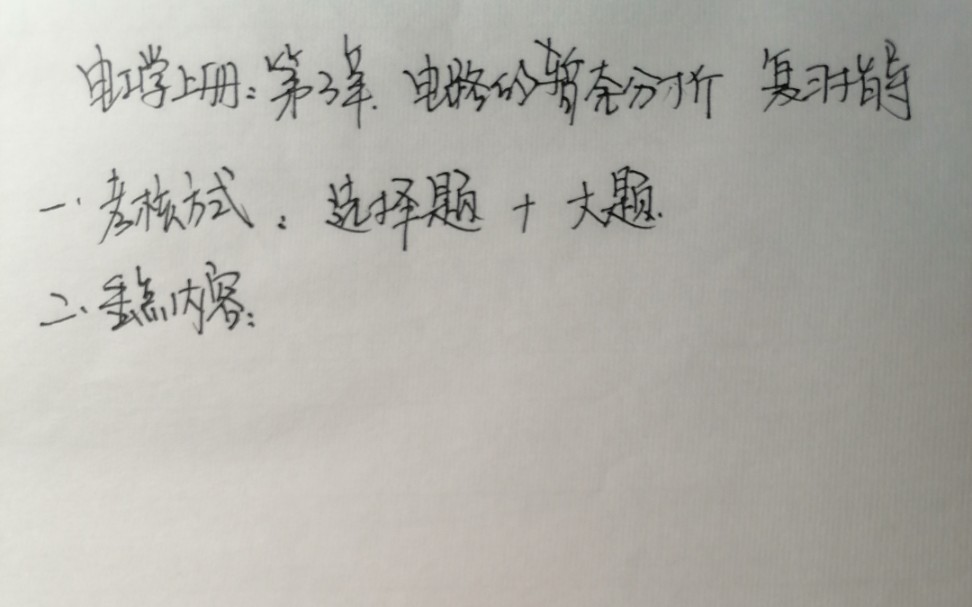 电工学上册：第3章. 电路的暂态分析 复习指导
一. 考核方式：选择题 + 大题.
二. 重点内容：